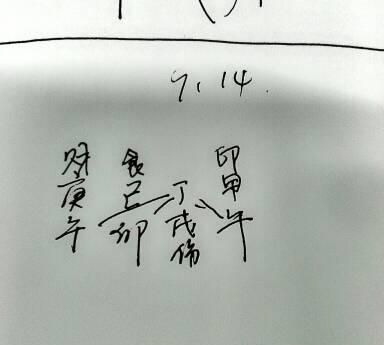 7.14
财庚午
食己卯
丁戌伤
印甲午